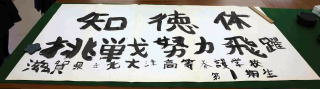 知徳体
挑戦努力飛躍
滋賀県立北大津高等養護学校
第1期生